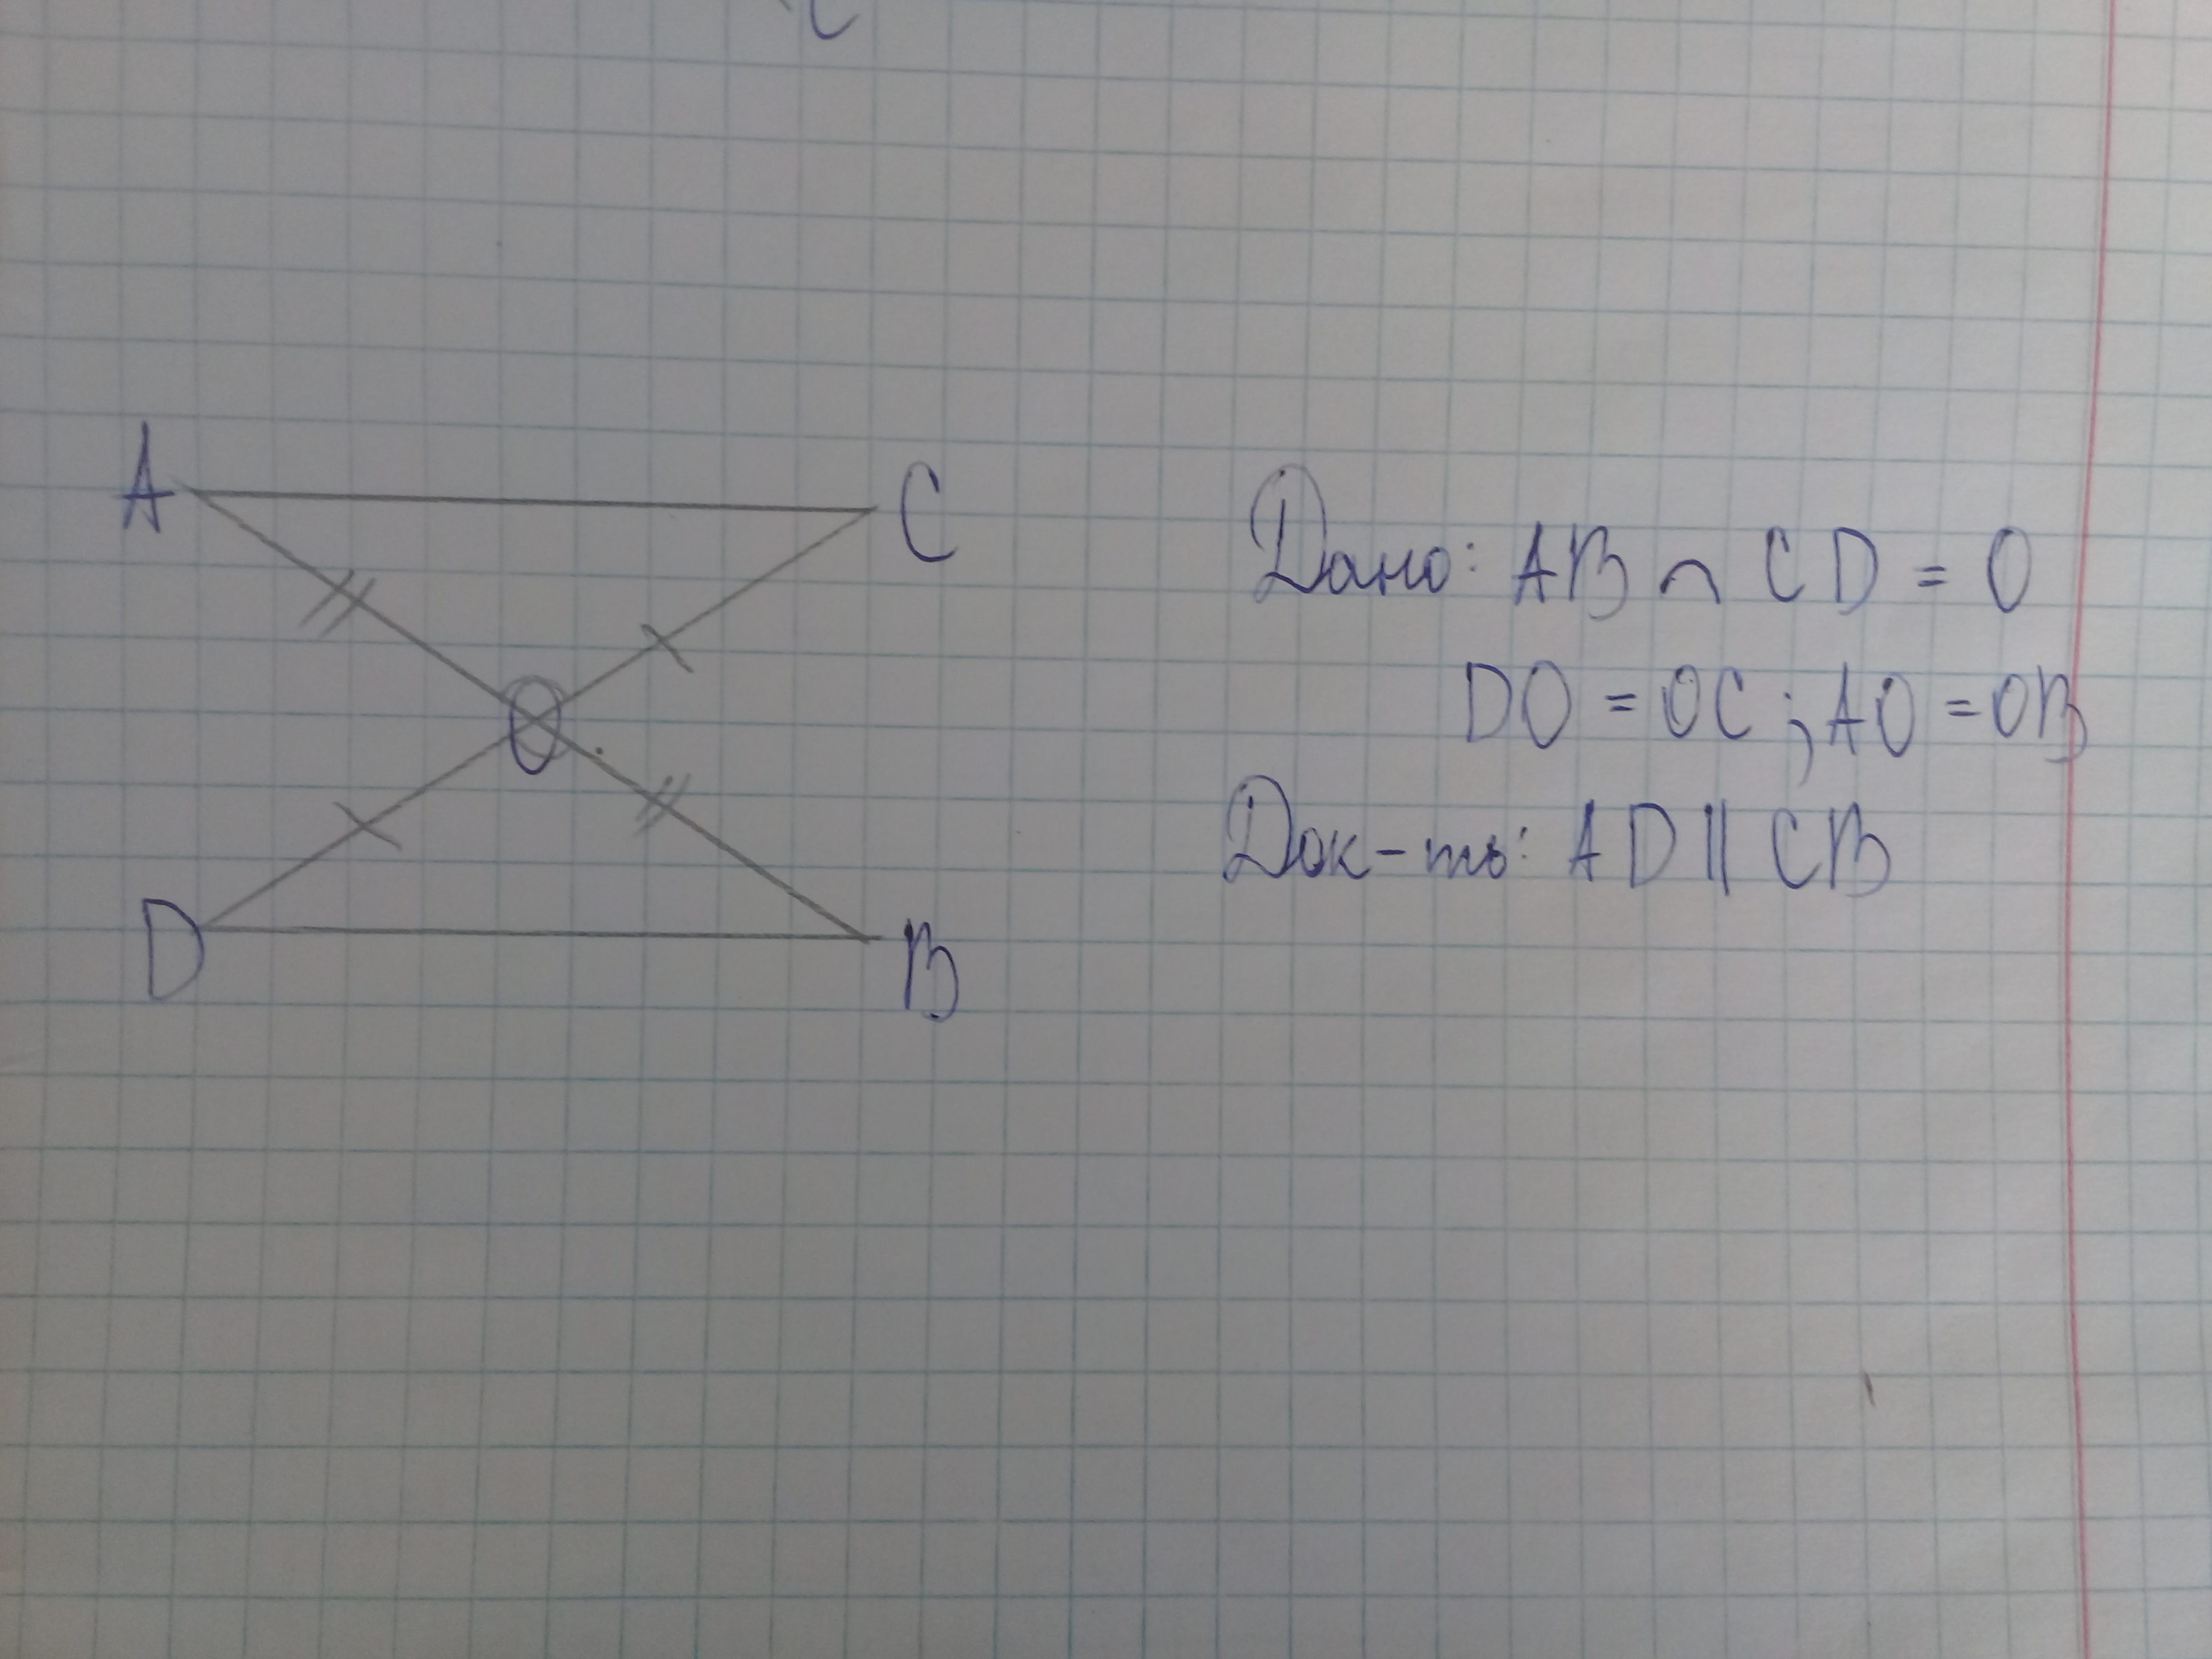 A
C
O
D
B
Дано: AB ∩ CD = O
DO = OC ; AO = OB
Док-ть: AD || CB